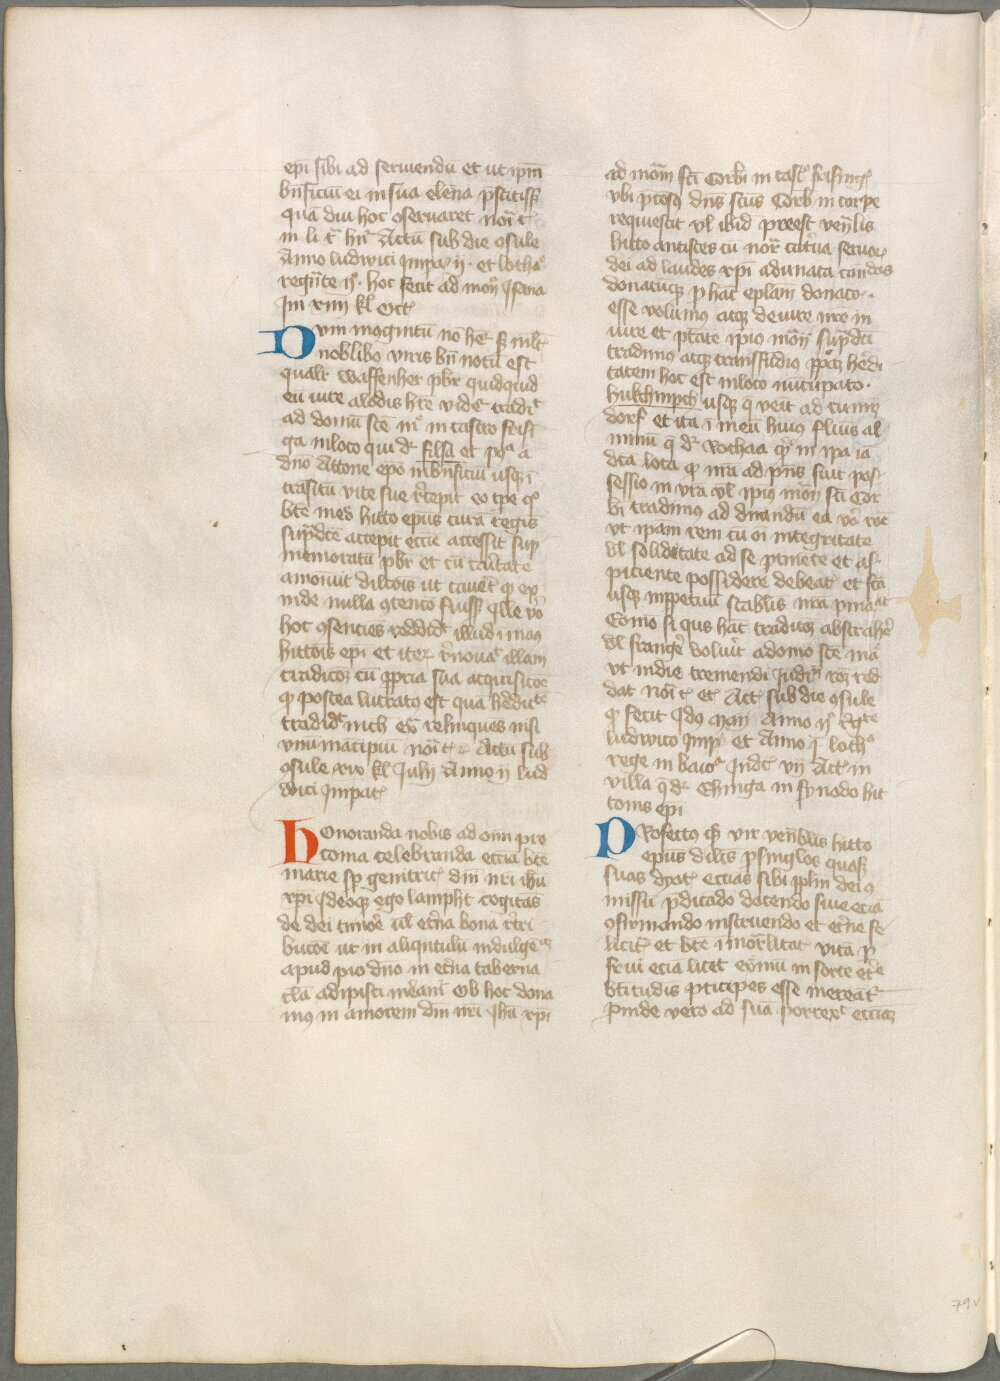 epi sibi ad serviendu et ut ipm
bnficiu ei in sua elena pstitiss
qua diu hoc gservaret noi t
in li t hnr Actu sub die gsule
Anno ludwici impa ii et lotha
regnte ii hoc fecit ad mon Isana
in xiiii kl oct
Dum mogintu no hec s mlt
noblibo viris bn notu est
qualr waffenher pbr quidquid
eu iure alodis hre videt tradit
ad domu sce m in castro frisi
ga in loco qui dr filsa et p a
dno Attone epo in bnficiu usq i
trasitu vite sue rcepit eo tpe q
bte med hitto epus cura regis
supdcte accepit eccie accessit sup
memoratu pbr et cu caritate
amonuit dilcois ut cavet q ex
inde nulla gtentio fuiss qlle vo
hoc gsencies reddidt illud i man
hittois epi et iter rnovat illam
tradicoe cu ppria sua acquisicoe
q postea lucratus est qua hedite
tradidt nich ex relinques nisi
unu mancipiu noi t Actu sub
gsule xvo kl Julii Anno ii lud
wici impat
Honoranda nobis ad omi pre
coma celebranda eccia bte
marie sp genitrit dni nri ihu
xpi Ideoq ego lampht cogitas
de dei timore ul etna bona rtri
bucoe ut in aliqntulu indulge
apud pio dno in etna taberna
cla adipisci mream Ob hoc dona
mus in amorem dni nri ihu xpi
ad mom sci Corbi in cast frising
ubi ptosq dns scus Corb in corpe
requiescit vl ibid preest venlis
hitto antistes cu nor catva servor
dei ad laudes xpi adunata candas
donatuq p hac eplam donato
esse volumo atq de iure nro in
iure et ptate ipius mon supdci
tradimo atq transfudio ppa hedi
tatem hoc est in loco nucupato
hukhinpch usq q venit ad cumi
dorf et ita i meu huius fluus al
minu q dr Rothaa q in ipa ia
dca loca q nra ad pns fuit pos
sessio in vra vl ipius mon sci Cor
bi tradimo ad dnandu ea vo roe
ut ipam rem cu oi integritate
vl soliditate ad se ptinete et as
piciente possidere debeat et sta
usq inppetuu stablis nra pmaat
Eomo si quis hac tradico abstrahe
vl frange voluit adomo sce ma
ut in die tremendi iudii roe red
dat noi t et Act sub die gsule
q fecit Idus maii Anno ii Rgte
ludwico imp et Anno i loth
rege in baio Indct vii Act in
villa q dr Ehinga in synodo hit
tonis epi
Profecto q vir venblis hitto
epus dilcs p singlos quasq
suas dyot eccias sibi ipliu dei q
missu pdicado docendo sive ecia
gfirmando instruendo et etne fe
licit et bte imorlitat vita p
frui ecia licet eomu in sorte etne
btitudis pticipes esse mereat
Pinde veto ad sua porrext eccia
79v